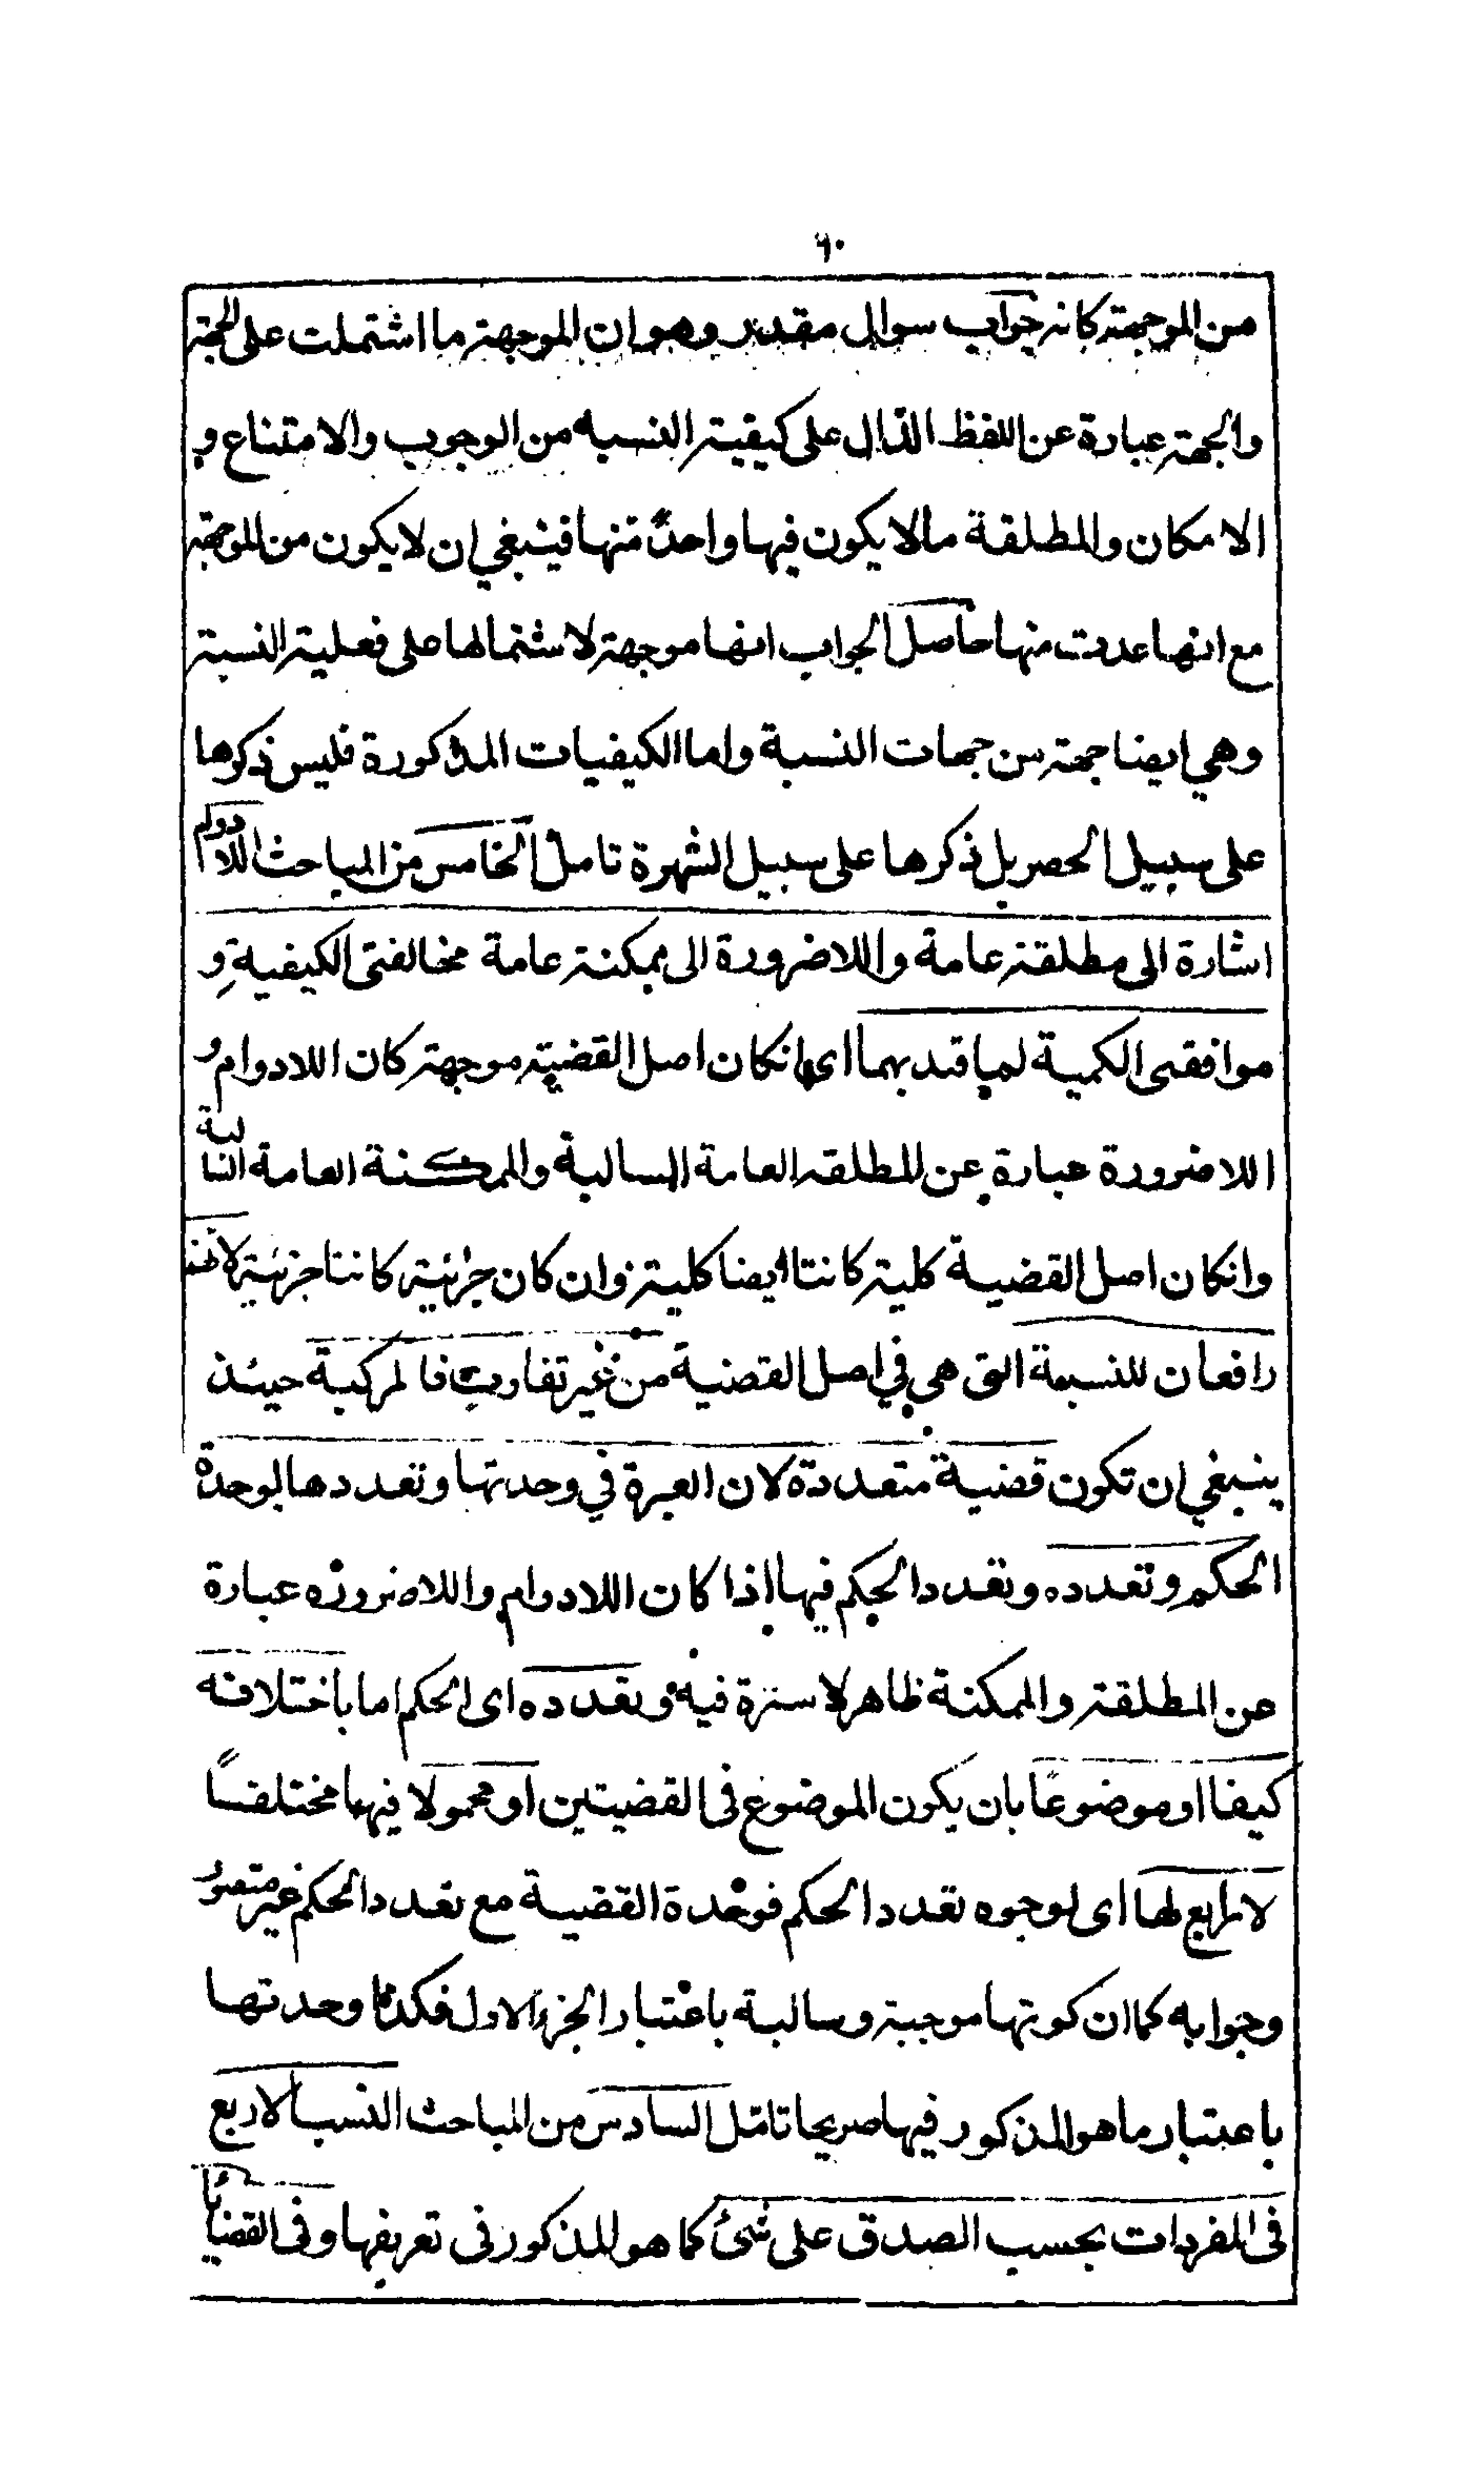 ٦٠
من الموجهة كانه جواب سوال مقدر وهو ان الموجهة ما اشتملت على الجهة
والجهة عبارة عن اللفظ الدال على كيفية النسبه من الوجوب والامتناع و
الامكان والمطلقة مالا يكون فيها واحد منها فينبغي ان لا يكون من الموجهة
مع انها عدت منها حاصل الجواب انها موجهة لاشتمالها على فعلية النسبة
وهي ايضا جهة من جهات النسبة واما الكيفيات المذكورة فليس ذكرها
على سبيل الحصر بل ذكرها على سبيل الشهرة تامل الخامس من المباحث اللادوام
اشارة الى مطلقة عامة واللاضرورة الى ممكنة عامة مخالفتى الكيفية و
موافقتى الكمية لما قيد بهما اى انكان اصل القضية موجهة كان اللادوام و
اللاضرورة عبارة عن المطلقه العامة السالبة والممكنة العامة السالبة
وانكان اصل القضية كلية كانتا ايضا كلية وان كان جزئية كانتا جزئية لانهما
رافعان للنسبة التى هي في اصل القضية من غير تفاوت فالمركبة حينئذ
ينبغي ان تكون قضية متعددة لان العبرة في وحدتها وتعددها لوحدة
الحكم وتعدده وتعدد الحكم فيها اذا كان اللادوام واللاضرورة عبارة
عن المطلقة والممكنة ظاهر لا سترة فيه وتعدده اى الحكم اما باختلافه
كيفا او موضوعًا بان يكون الموضوع فى القضيتين او محمولا فيهما مختلفًا
لا رابع لها اى لوجوه تعدد الحكم فوحدة القضية مع تعدد الحكم غير متصور
وجوابه كما ان كونها موجبة وسالبة باعتبار الجزء الاول فكذا وحدتها
باعتبار ما هو المذكور فيها صريحا تامّل السادس من المباحث النسب الاربع
فى المفردات بحسب الصدق على شئ كما هو المذكور فى تعريفها وفى القضايا